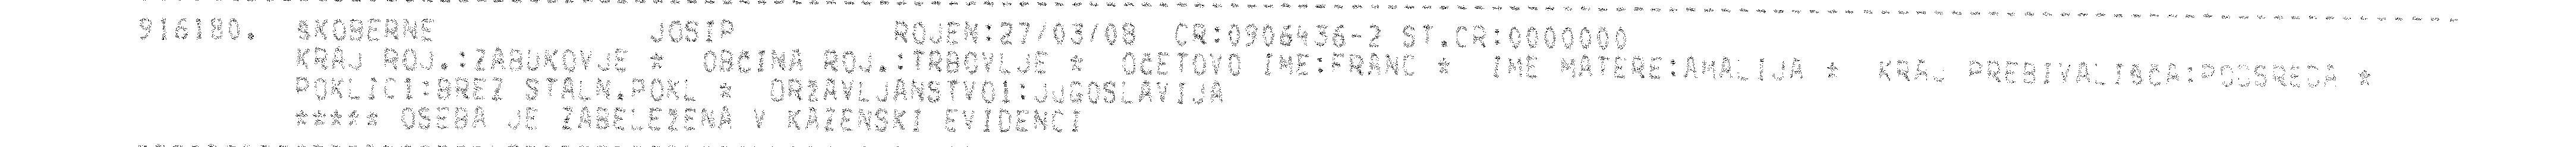 916180. SKOBERNE JOSIP ROJEN:27/03/08 CR:0906436-2 ST.CR:0000000
KRAJ ROJ.:ZABUKOVJE * OBČINA ROJ.:TRBOVLJE * OČETOVO IME:FRANC * IME MATERE:AMALIJA * KRAJ PREBIVALIŠČA:PODSREDA *
POKLICI:BREZ STALN.POKL * DRŽAVLJANSTVO1:JUGOSLAVIJA
***** OSEBA JE ZABELEŽENA V KAZENSKI EVIDENCI